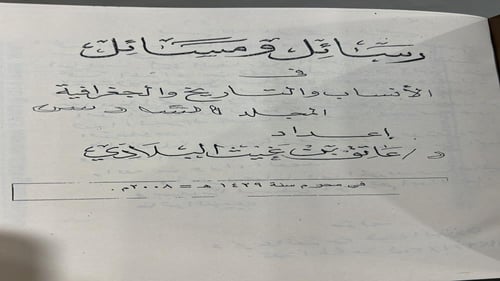 رسائل ومسائل
في
الأنساب والتاريخ والجغرافية
المجلد السادس
إعداد
د/ عاتق بن غيث البلادي
في محرم سنة ١٤٢٩ هـ = ٢٠٠٨م.